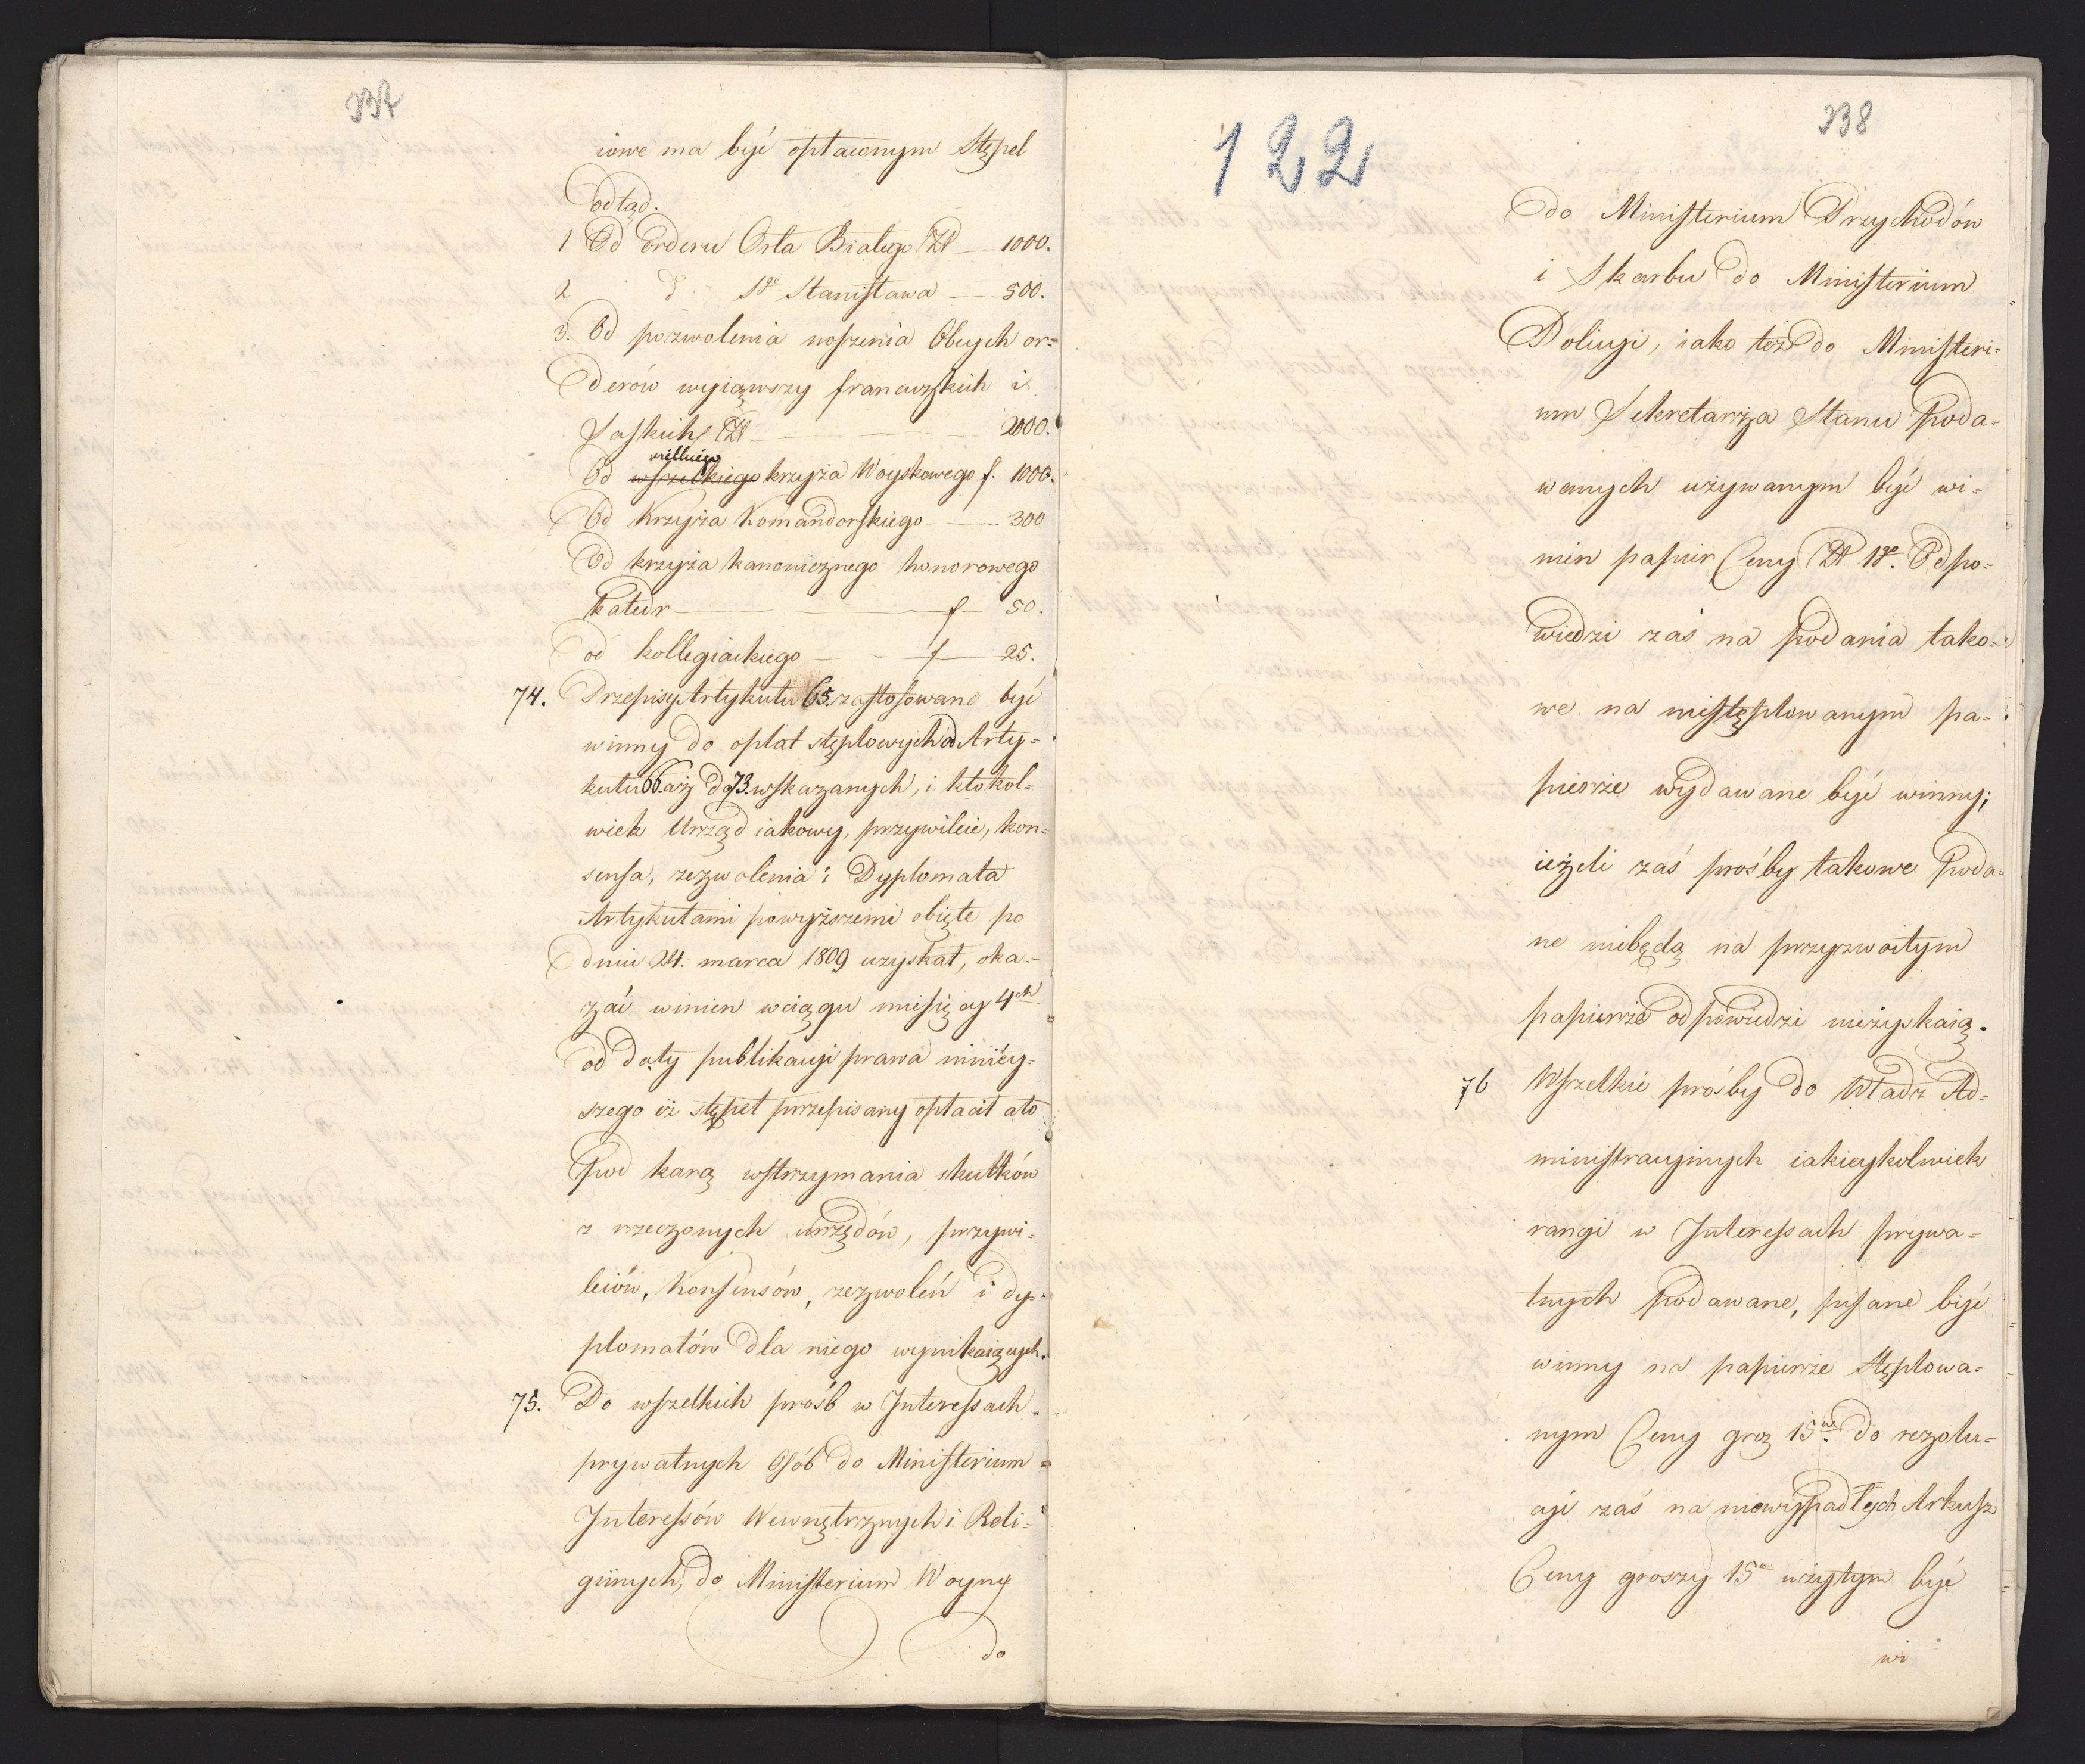 337
iowe ma być opłaconym Stępel
odtąd.
1 Od orderu Orła Białego Zł — 1000.
2 d Sgo Stanisława — 500.
3. Od pozwolenia noszenia Obcych or=
derów wyiąwszy francuzkich i
Saskich Zł — 2000.
wielkiego
Od wszelkiego krzyża Woyskowego f. 1000.
Od Krzyża Komandorskiego — 300
Od krzyża kanonicznego honorowego
katedr — f 50.
od kollegiackiego — f — 25.
74. Przepisy Artykułu 65. zastosowane być
winny do opłat stęplowych od Arty=
kułu 66. aż do 73. wskazanych, i ktokol=
wiek Urząd iakowy, przywileie, kon=
sensa, zezwolenia i Dyplomata
Artykułami powyższemi obięte po
dniu 24. marca 1809 uzyskał, oka=
zać winien wciągu miesięcy 4ch
od daty publikacyi prawa niniey=
szego iż stępel przepisany opłacił a to
pod karą wstrzymania skutków
z rzeczonych urzędów, przywi=
leiów, Konsensów, zezwoleń i dy=
plomatów dla niego wynikaiących.
75. Do wszelkich prośb w Interessach
prywatnych Osób do Ministerium
Interessów Wewnętrznych i Reli=
giinych, do Ministerium Woyny
do
122
338
do Ministerium Przychodów
i Skarbu do Ministerium
Policyi, iako też do Ministeri=
um Sekretarza Stanu poda=
wanych używanym być wi=
nien papier Ceny Zł 1go. Odpo=
wiedzi zaś na podania tako=
we na niestęplowanym pa=
pierze wydawane być winny;
ieżeli zaś prośby takowe poda=
ne niebędą na przyzwoitym
papierze odpowiedzi niezyskaią.
76 Wszelkie prośby do Władz Ad=
ministracyinych iakieykolwiek
rangi w Interessach prywa=
tnych podawane, pisane być
winny na papierze Stęplowa=
nym Ceny groz 15. do rezolu=
cyi zaś na nie wypadłych Arkusz
Ceny groszy 15 użytym być
wi